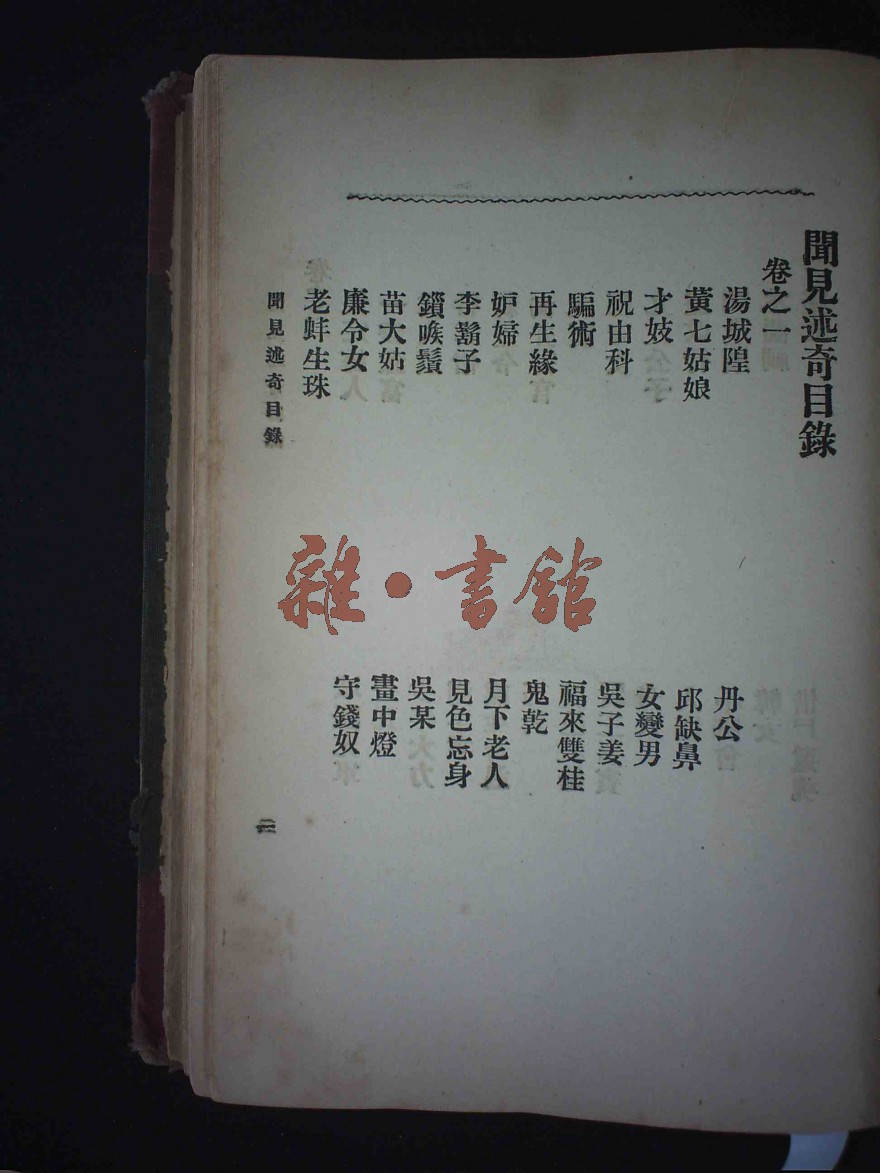 聞見述奇目錄
卷之一
湯城隍
丹公
黃七姑娘
邱缺鼻
才妓
女變男
祝由科
吳子姜
騙術
福來雙桂
再生緣
鬼乾
妒婦
月下老人
李鬍子
見色忘身
鎖喉鬚
吳某
苗大姑
畫中燈
廉令女
守錢奴
老蚌生珠
聞見述奇目錄
二
雜·書館